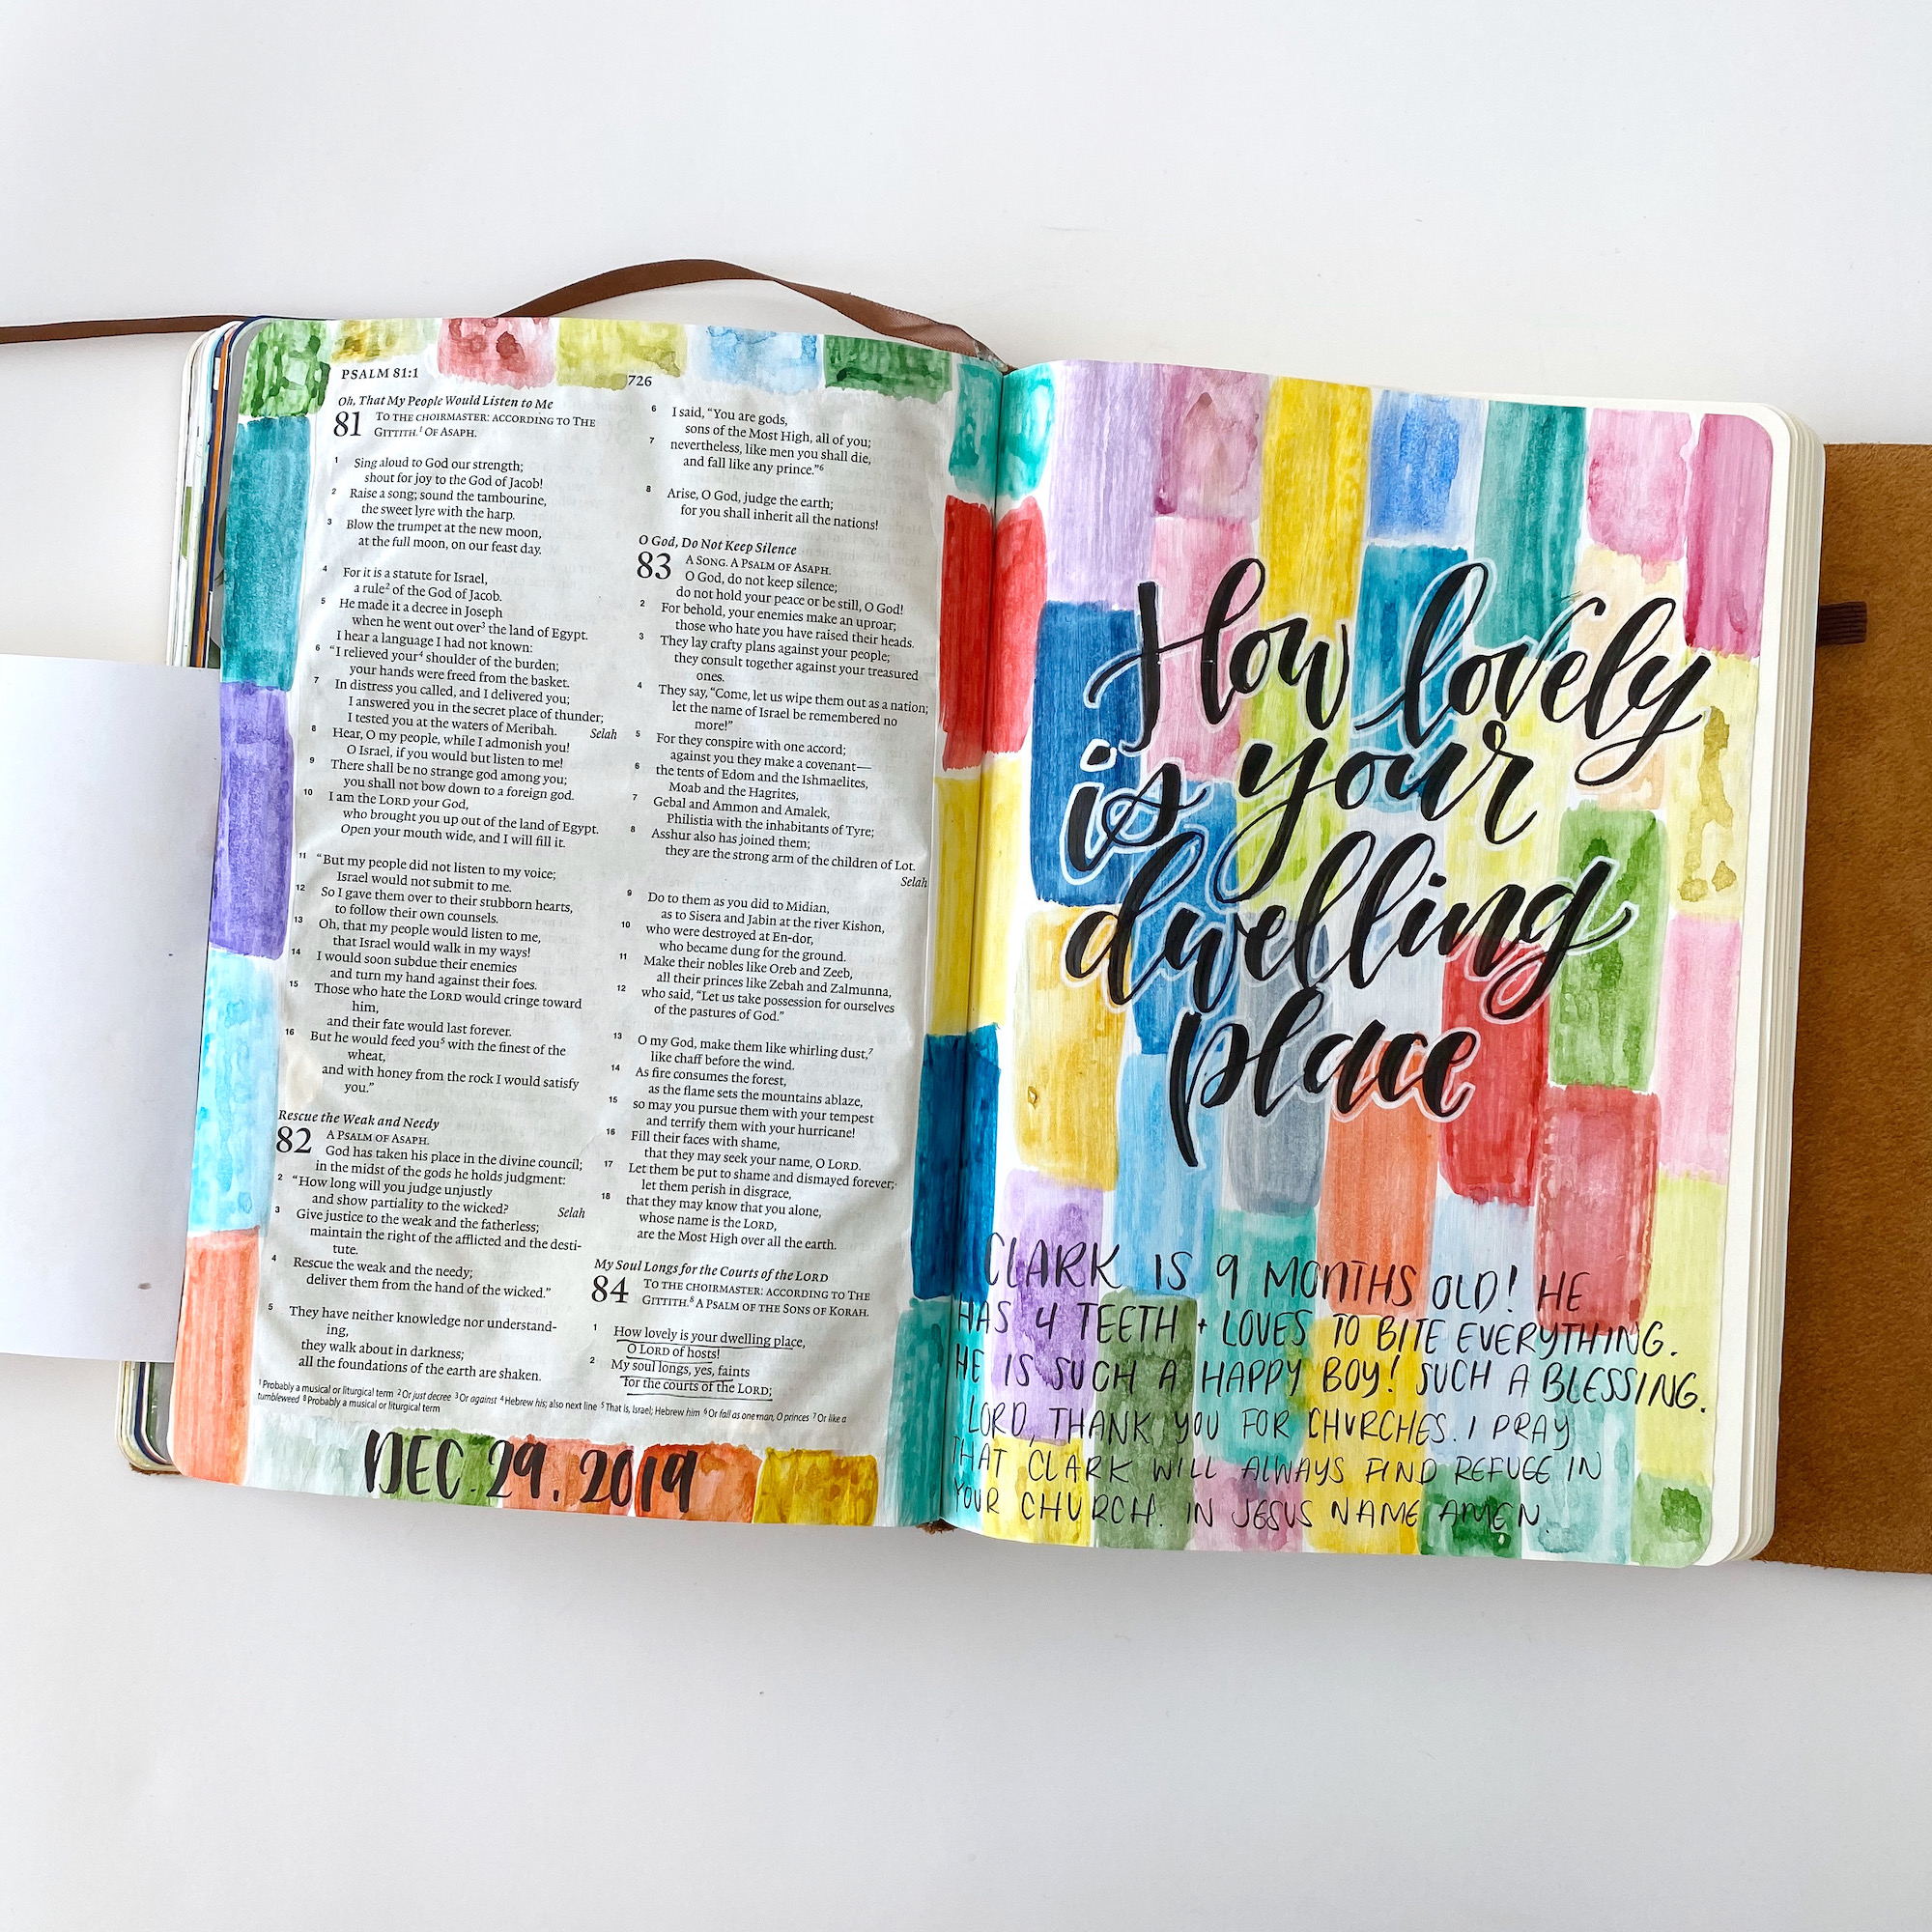 PSALM 81:1
726
Oh, That My People Would Listen to Me
81 TO THE CHOIRMASTER: ACCORDING TO THE
GITTITH.1 OF ASAPH.
1 Sing aloud to God our strength;
shout for joy to the God of Jacob!
2 Raise a song; sound the tambourine,
the sweet lyre with the harp.
3 Blow the trumpet at the new moon,
at the full moon, on our feast day.
4 For it is a statute for Israel,
a rule2 of the God of Jacob.
5 He made it a decree in Joseph
when he went out over3 the land of Egypt.
I hear a language I had not known:
6 “I relieved your4 shoulder of the burden;
your hands were freed from the basket.
7 In distress you called, and I delivered you;
I answered you in the secret place of thunder;
I tested you at the waters of Meribah. Selah
8 Hear, O my people, while I admonish you!
O Israel, if you would but listen to me!
9 There shall be no strange god among you;
you shall not bow down to a foreign god.
10 I am the LORD your God,
who brought you up out of the land of Egypt.
Open your mouth wide, and I will fill it.
11 “But my people did not listen to my voice;
Israel would not submit to me.
12 So I gave them over to their stubborn hearts,
to follow their own counsels.
13 Oh, that my people would listen to me,
that Israel would walk in my ways!
14 I would soon subdue their enemies
and turn my hand against their foes.
15 Those who hate the LORD would cringe toward
him,
and their fate would last forever.
16 But he would feed you5 with the finest of the
wheat,
and with honey from the rock I would satisfy
you.”
Rescue the Weak and Needy
82 A PSALM OF ASAPH.
God has taken his place in the divine council;
in the midst of the gods he holds judgment:
2 “How long will you judge unjustly
and show partiality to the wicked? Selah
3 Give justice to the weak and the fatherless;
maintain the right of the afflicted and the desti-
tute.
4 Rescue the weak and the needy;
deliver them from the hand of the wicked.”
5 They have neither knowledge nor understand-
ing,
they walk about in darkness;
all the foundations of the earth are shaken.
6 I said, “You are gods,
sons of the Most High, all of you;
7 nevertheless, like men you shall die,
and fall like any prince.”6
8 Arise, O God, judge the earth;
for you shall inherit all the nations!
O God, Do Not Keep Silence
83 A SONG. A PSALM OF ASAPH.
O God, do not keep silence;
do not hold your peace or be still, O God!
2 For behold, your enemies make an uproar;
those who hate you have raised their heads.
3 They lay crafty plans against your people;
they consult together against your treasured
ones.
4 They say, “Come, let us wipe them out as a nation;
let the name of Israel be remembered no
more!”
5 For they conspire with one accord;
against you they make a covenant—
6 the tents of Edom and the Ishmaelites,
Moab and the Hagrites,
7 Gebal and Ammon and Amalek,
Philistia with the inhabitants of Tyre;
8 Asshur also has joined them;
they are the strong arm of the children of Lot.
Selah
9 Do to them as you did to Midian,
as to Sisera and Jabin at the river Kishon,
10 who were destroyed at En-dor,
who became dung for the ground.
11 Make their nobles like Oreb and Zeeb,
all their princes like Zebah and Zalmunna,
12 who said, “Let us take possession for ourselves
of the pastures of God.”
13 O my God, make them like whirling dust,7
like chaff before the wind.
14 As fire consumes the forest,
as the flame sets the mountains ablaze,
15 so may you pursue them with your tempest
and terrify them with your hurricane!
16 Fill their faces with shame,
that they may seek your name, O LORD.
17 Let them be put to shame and dismayed forever;
let them perish in disgrace,
18 that they may know that you alone,
whose name is the LORD,
are the Most High over all the earth.
My Soul Longs for the Courts of the LORD
84 TO THE CHOIRMASTER: ACCORDING TO THE
GITTITH.8 A PSALM OF THE SONS OF KORAH.
1 How lovely is your dwelling place,
O LORD of hosts!
2 My soul longs, yes, faints
for the courts of the LORD;
1 Probably a musical or liturgical term 2 Or just decree 3 Or against 4 Hebrew his; also next line 5 That is, Israel; Hebrew him 6 Or fall as one man, O princes 7 Or like a
tumbleweed 8 Probably a musical or liturgical term
DEC. 29. 2019
How lovely
is your
dwelling
place
CLARK IS 9 MONTHS OLD! HE
HAS 4 TEETH + LOVES TO BITE EVERYTHING.
HE IS SUCH A HAPPY BOY! SUCH A BLESSING.
LORD, THANK YOU FOR CHURCHES. I PRAY
THAT CLARK WILL ALWAYS FIND REFUGE IN
YOUR CHURCH. IN JESUS NAME AMEN.